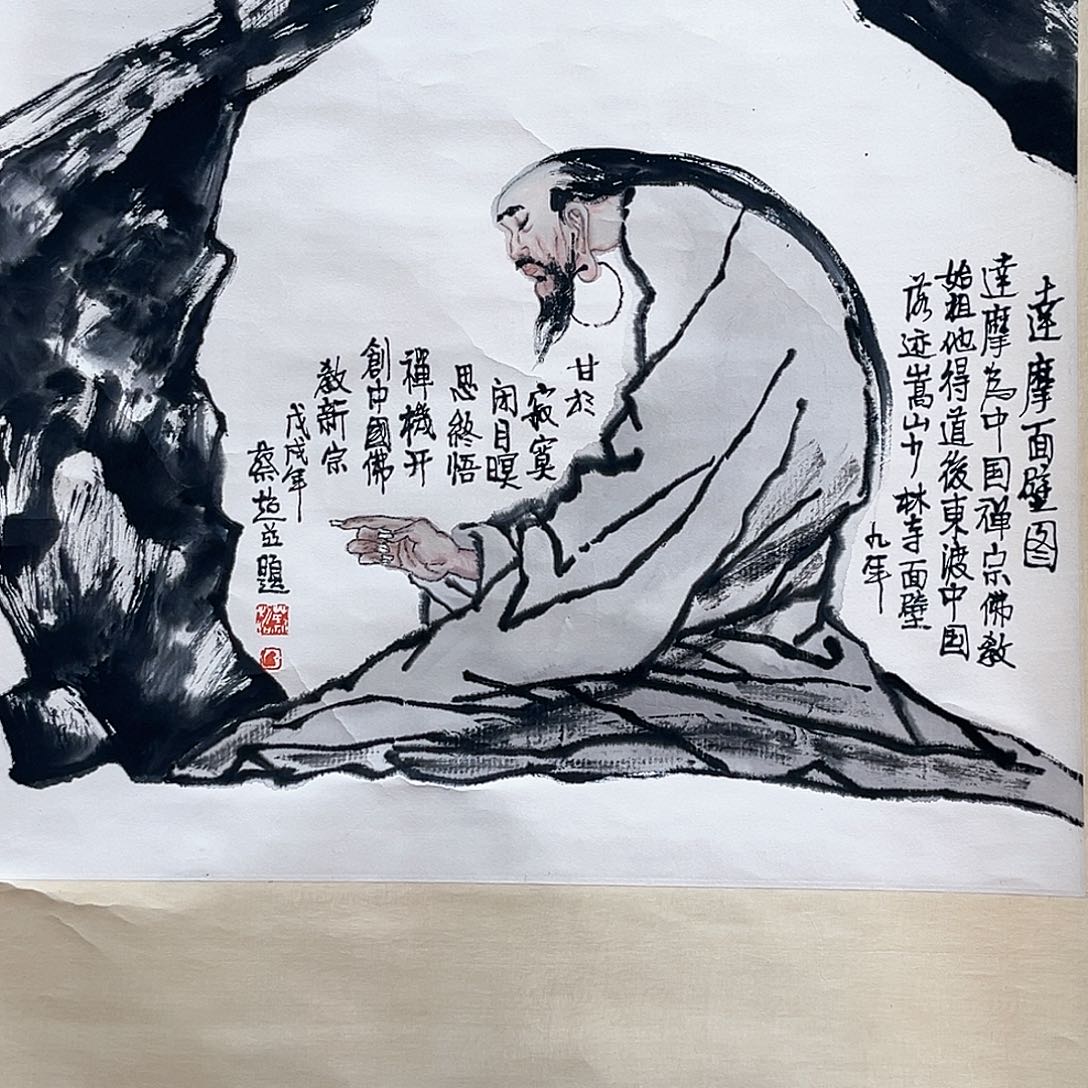 達摩面壁图
達摩為中国禅宗佛教
始祖他得道後東渡中国
落迹嵩山少林寺面壁
九年
甘於
寂寞
闭目暝
思終悟
禪機开
創中國佛
教新宗
戊戌年
蔡超並題